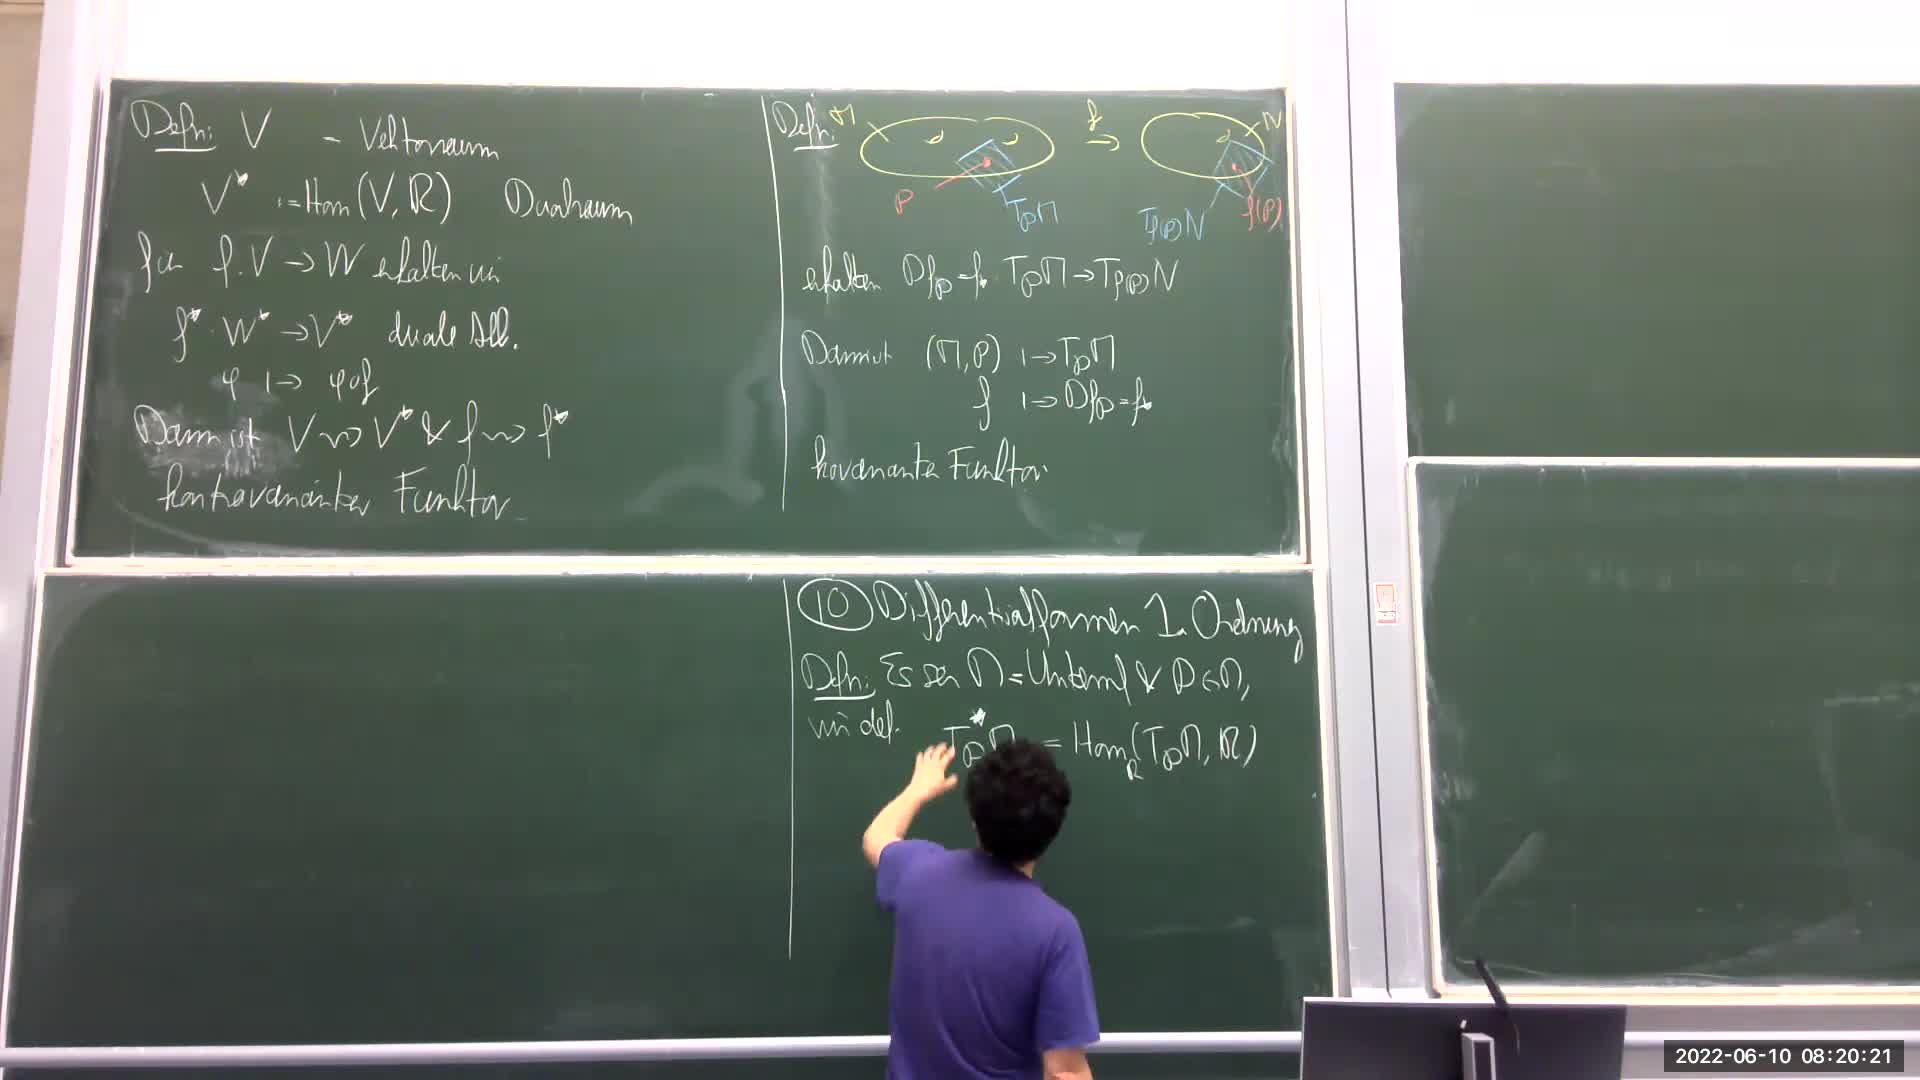 Defn: V - Vektorraum
V* := Hom(V, ℝ) Dualraum
Für f: V → W erhalten wir
f*: W* → V* duale Abb.
φ ↦ φ∘f
Dann ist V ⇝ V* & f ⇝ f*
kontravarianter Funktor
Defn: M f → N
P TₚM T_f(P)N f(P)
erhalten Dfₚ = f* : TₚM → T_f(P)N
Damit (M, P) ↦ TₚM
f ↦ Dfₚ = f*
kovarianter Funktor
10 Differentialformen 1. Ordnung
Defn: Es sei M = Untermf & P ∈ M,
wir def. Tₚ*M = Hom_ℝ(TₚM, ℝ)
2022-06-10 08:20:21